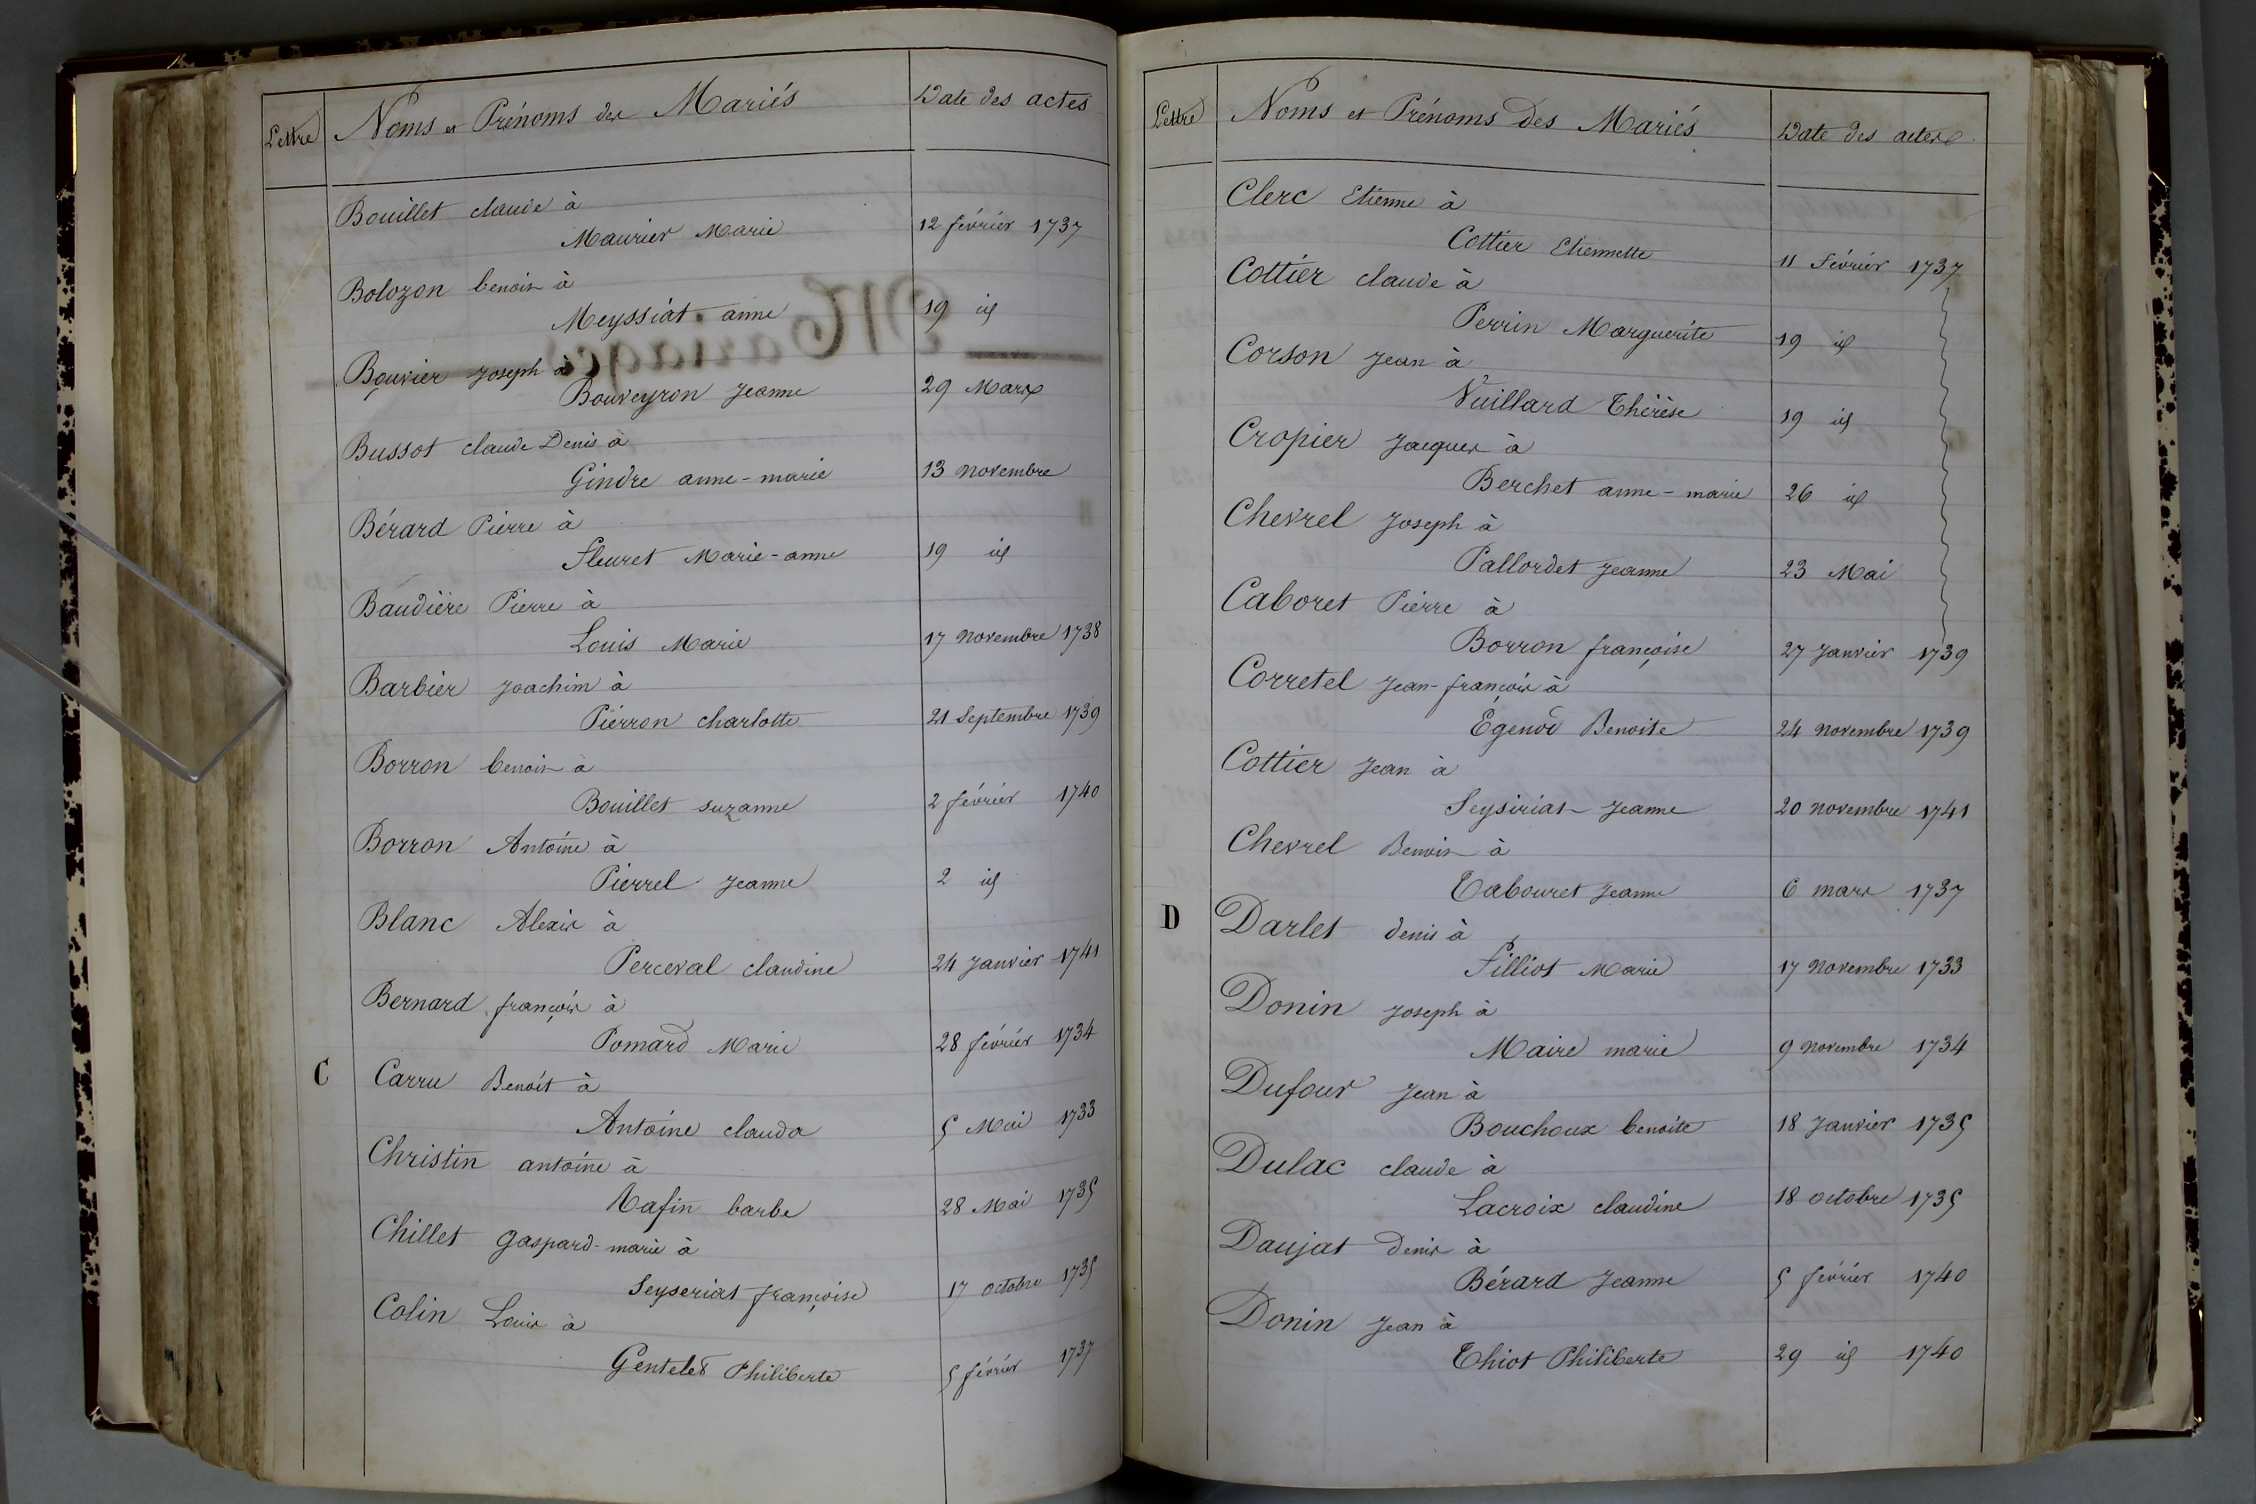 Lettre Noms et Prénoms des Mariés Date des actes
Bouillet claude à
Maurier Marie 12 février 1737
Bolozon benoit à
Meyssiat anne 19 id
Bouvier Joseph à
Bouveyron Jeanne 29 Mars
Bussot claude Denis à
Gindre anne-marie 13 novembre
Bérard Pierre à
Fleuret Marie-anne 19 id
Baudière Pierre à
Louis Marie 17 novembre 1738
Barbier Joachim à
Pierron charlotte 21 Septembre 1739
Borron benoit à
Bouillet suzanne 2 février 1740
Borron Antoine à
Pierrel Jeanne 2 id
Blanc Alexis à
Perceval claudine 24 Janvier 1741
Bernard françois à
Pomard Marie 28 février 1734
C Carru Benoit à
Antoine clauda 5 Mai 1733
Christin antoine à
Rafin barbe 28 Mai 1735
Chillet gaspard-marie à
Seyseriat françoise 17 octobre 1735
Colin Louis à
Gentelet Philiberte 5 février 1737
Lettre Noms et Prénoms Des Mariés Date des actes
Clerc Etienne à
Cottier Etiennette 11 Février 1737
Cottier claude à
Perrin Marguerite 19 id
Corson Jean à
Vuillard Thérèse 19 id
Cropier Jacques à
Berchet anne-marie 26 id
Chevrel Joseph à
Pallordet Jeanne 23 Mai
Caboret Pierre à
Borron françoise 27 Janvier 1739
Corretel Jean-françois à
Egenod Benoite 24 novembre 1739
Cottier Jean à
Seysiriat Jeanne 20 novembre 1741
Chevrel Benoit à
Tabouret Jeanne 6 mars 1737
D Darlet denis à
Filliot Marie 17 Novembre 1733
Donin Joseph à
Maire marie 9 novembre 1734
Dufour Jean à
Bouchoux benoite 18 Janvier 1735
Dulac claude à
Lacroix claudine 18 octobre 1735
Daujat Denis à
Bérard Jeanne 5 février 1740
Donin Jean à
Thiot Philiberte 29 id 1740